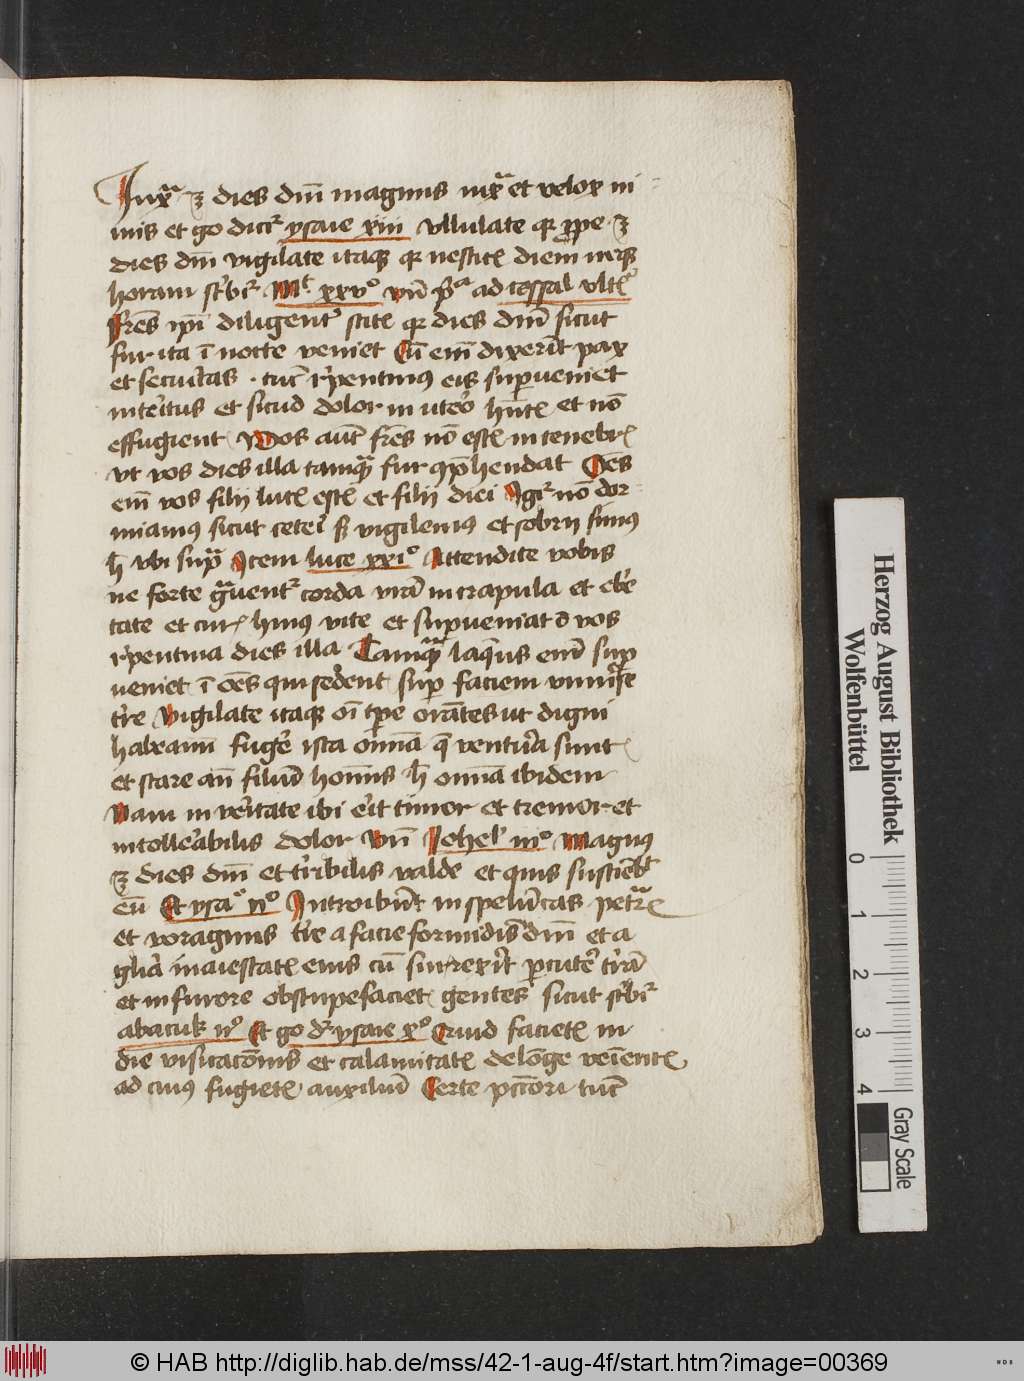 Iuxᵃ ꝫ dies dnī magnus iuxᵃ et velox ni
mis et gͦ dicit̉ ysaie xiii vllulate qꝛ ꝓpe ꝫ
dies dnī vigilate itaqꝫ qꝛ nescitꝭ diem neqꝫ
horam sc̉bit̉ Mᵗ xxvͦ vn̄ pᵃ ad tessal vltꝭ
Fr̄es ip̄i diligent̉ scitꝭ qꝛ dies dnī sicut
fur ita ī nocte veniet Cū em̄ dixerīt pax
et securitas tūc repentinꝰ eis suꝑueniet
interitus et sicud dolor in utero hn̄tꝭ et nō
effugient Vos aūt fr̄es nō estꝭ in tenebrꝭ
vt vos dies illa tamqᵃ fur ꝯp̄hendat Oēs
em̄ vos filij lucꝭ estꝭ et filij diei Igit̉ nō dor
miamꝰ sicut ceteri sꝫ vigilemꝰ et sobrij simꝰ
h̄ vbi supᵃ Item luce xxiͦ Attendite vobis
ne forte gᵃuent̉ corda vr̄a in crapula et ebrie
tate et curꝭ huiꝰ vite et suꝑueniat ī vos
repentina dies illa Tamqᵃ laqueus em̄ suꝑ
ueniet ī oēs qui sedent suꝑ faciem vniuꝰse
terre Vigilate itaqꝫ oī tꝑe orātes ut digni
habeamī fugere ista omīa q̄ ventura sunt
et stare an̄ filiū homīs h̄ omīa ibidem
Nam in veritate ibi erit timor et tremor et
intollerabilis dolor Vn̄ Johel iiͦ Magnꝰ
ꝫ dies dnī et terribilis valde et quis sustinebit
eū Et ysaͦ iiͦ Introibūt in speluncas petrꝭ
et voraginis terre a facie formidīs dnī et a
gloria maiestatꝭ eius cū surrexerit ꝑcutere terrā
et in furore obstupefaciet gentes sicut sc̉bit̉
abacuk iiͦ Et gͦ dr̄ ysaie xͦ Quid facietꝭ in
die visitacōnis et calamitatꝭ de longe venientꝭ
ad cuiꝰ fugietꝭ auxiliū Certe pct̄ori tūc
Herzog August Bibliothek
Wolfenbüttel
0 1 2 3 4
Gray Scale
© HAB http://diglib.hab.de/mss/42-1-aug-4f/start.htm?image=00369